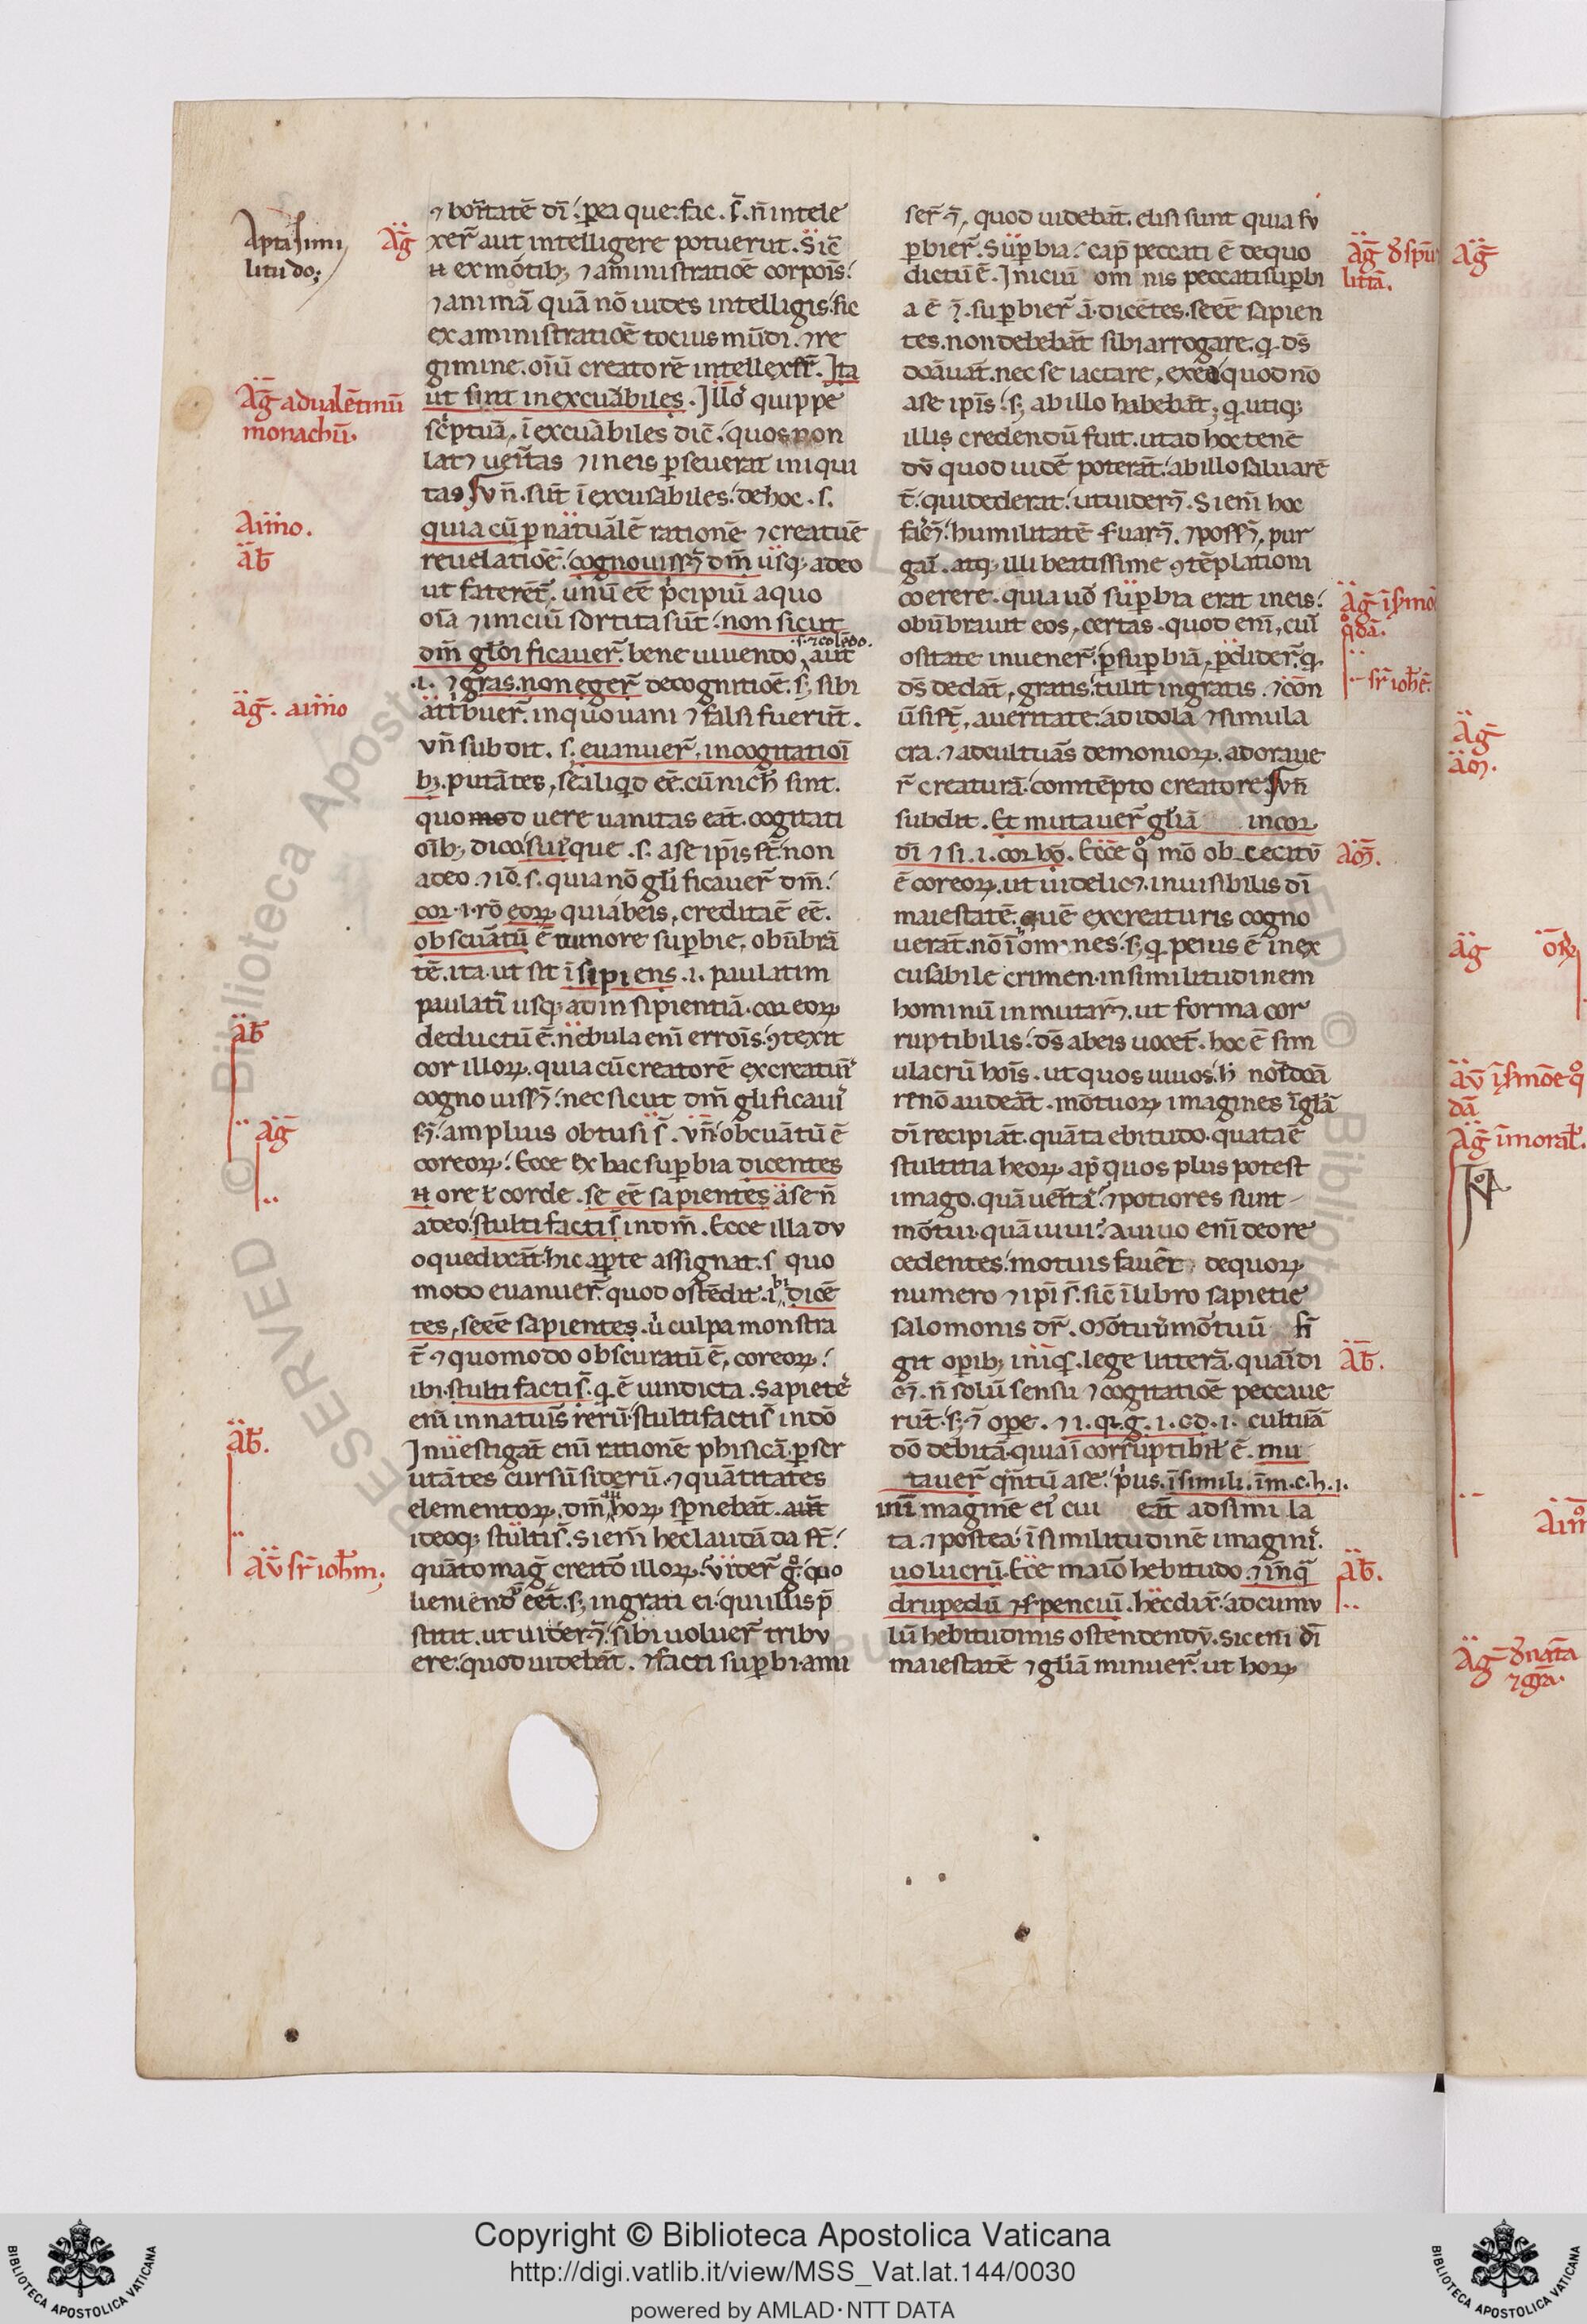 ⁊ bonitatē dī. pea que. fac. s̄. n̄ intele
xer̄ aut intelligere potuerut. Sic̄
ex mōtib; ⁊ aministratiōe corpoīs.
⁊ animā quā nō uides intelligis. sic
ex aministratiōe tocius mūdi. ⁊ re
gimine. oīū creatorē intellexer̄t. Ita
ut sint inexcuābiles. Illo quippe
sc̄ptuā. ī excuābiles dic̄. quos non
lat⁊ ueritas ⁊ in eis pseuerat iniqui
tas vn̄. sūt ī excusabiles. de hoc. s.
quia cū p natuālē rationē ⁊ creatuē
reuelatiōē. cognouissn̄ dm̄ usq; adeo
ut faterēt̄. unū eē p̄cipiū a quo
oīa ⁊ iniciū sortita sūt. non sicut
dm̄ glori ficauer̄. bene uiuendo, aut
.i. ⁊ gras. non eger̄ de cognitiōe. s; sibi
attbuer̄. in quo uani ⁊ falsi fuerūt.
vn̄ subdit. s. euanuer̄. in cogitatioī
b;. putātes, se aliqd eē. cū nich̄ sint.
quomodo uere uanitas eāt. cogitati
oīb; dico suis que .s. a se ip̄is s̄t. non
a deo. ⁊ iō. s. quia nō glificauer̄ dm̄.
cor .i. rō eorꝝ quia b eis, credita ē eē.
obscuātū ē tumore supbie, obūbrā
tē. ita ut sit īsipiens .i. paulatim
paulatī usq; ad in sipientiā. cor eorꝝ
deductū ē. nebula enī erroīs. ꝯtexit
cor illorꝝ. quia cū creatorē ex creatur̄
cognouissn̄. nec sicut dm̄ glificaui
sn̄. amplius obtusi s̄. vn̄ obcuātū ē
cor eorꝝ. Ecce ex hac supbia dicentes
ore ł corde. se eē sapientes a se n̄
a deo. stulti facti s̄ in dm̄. Ecce illa du
o que dixāt. hic apte assignat. s quo
modo euanuer̄. quod ostēdit. ibi, dicē
tes, se eē sapientes. ū culpa monstra
t̄ ⁊ quomodo obscuratū ē, cor eorꝝ.
ibi. stulti facti s̄. q. ē uindicta. Sapiētes
enī in natuīs rerū. stulti facti s̄ in dō
Inuestigāt enī rationē phisicā. pscr
utātes cursū siderū. ⁊ quātitates
elementorꝝ. dm̄ horꝝ spnebāt. aut
ideoq; stulti s̄. Si enī hec laudāda s̄t.
quāto maḡ creatō illorꝝ. Vider̄ g̊. quo
ueniendō eēt. s; ingrati ei. qui illis p̄
stitit. ut uidern̄. sibi uoluer̄ tribu
ere. quod uidebāt. ⁊ facti supbi. ami
sern̄, quod uidebāt. elisi sunt quia su
pbier̄. Supbia. cap̄ peccati ē de quo
dictū ē. Iniciū om nis peccati supbi
a ē. supbier̄ ā. dicētes. se eē sapien
tes. non debebāt sibi arrogare. q. ds̄
donauāt. nec se iactare, ex eo quod nō
a se ip̄is. s; ab illo habebāt, q. utiq;
illis credendū fuit. ut ad hoc tenē
dū quod uidē poterāt. ab illo saluarē
t̄. qui dederat. ut uidern̄. Si enī hoc
facern̄. humilitatē suarn̄. ⁊ possn̄, pur
gaī. atq; illi beatissime ꝯtēplationi
coerere. quia uō supbia erat in eis.
obūbrauit eos, certas. quod enī, cuī
ositate inuener̄. p supbiā, pdider̄. q.
ds̄ declāt, gratis. tulit ingratis. ⁊ cōn
ūsi s̄t, a ueritate. ad idola ⁊ simula
cra. ⁊ ad cultuās demoniorꝝ. adoraue
r̄ creaturā. comtēpto creatore. vn̄
subdit. Et mutauer̄ gliā in cor.
dī ⁊ si. i. cor hō. Ecce q̊ mō ob cecitū
ē cor eorꝝ. ut uidelic⁊. inuisibilis dī
maiestatē. quē ex creaturis cogno
uerāt. nō ī om nes. s; q. peius ē in ex
cusabile crimen. in similitudinem
hominū inmutarn̄. ut forma cor
ruptibilis. ds̄ ab eis uocet̄. hoc ē sim
ulacrū hoīs. ut quos uiuos. h noīe doā
re nō audeāt. mōtuorꝝ imagines ī gl̄ā
dī recipiāt. quāta ebitudo. quata ē
stultitia heorꝝ ap̄ quos plus potest
imago. quā ueritas. ⁊ potiores sunt
mōtui. quā uiui. a uiuo enī deo re
cedentes. motuis fauēt, de quorꝝ
numero ⁊ ipi s̄. sic ī libro sapietie
salomonis dr̄. Mōtuus mōtuū fī
git opib; iniq̄s. lege litterā. quaī di
n̄ solū sensu ⁊ cogitatiōe peccaue
rūt. s; ⁊ ope. ⁊ i. q. g. i. c d. i. cultuā
dō debitā. quia ī corruptibił ē. mu
tauer̄ q̄ntū a se. p̄us. ī simili. īm. c. h. i.
magine ei cui eāt adsimi la
ta. ⁊ postea. ī similitudinē imaginis.
uolucrū. Ecce maiō hebitudo. ⁊ in q̄
drupedū ⁊ spencuū. hec dix̄. ad cumu
lū hebitudinis ostendendū. Sic enī dī
maiestatē ⁊ gliā minuer̄. ut horꝝ
Apta simi
litudo;
Aḡ
Aḡ ad ualētinū
monachū.
Aimo.
ab̄
aḡ. aimo
ab̄
aḡ
Ab̄.
Av̄ sr̄ ioh̄m;
Aḡ d̄ spū
littā.
Aḡ ī smō
q̊dā.
sr̄ ioh̄ē.
Am̄.
Ab̄.
Ab̄.
Aḡ
Aḡ
am̄.
aḡ
av̄ ī smōe q̊
dā
Aḡ ī moral̄.
Aim̊
Aḡ d̄ natā
⁊ grā.
Copyright © Biblioteca Apostolica Vaticana
http://digi.vatlib.it/view/MSS_Vat.lat.144/0030
powered by AMLAD·NTT DATA
BIBLIOTECA APOSTOLICA VATICANA
BIBLIOTECA APOSTOLICA VATICANA